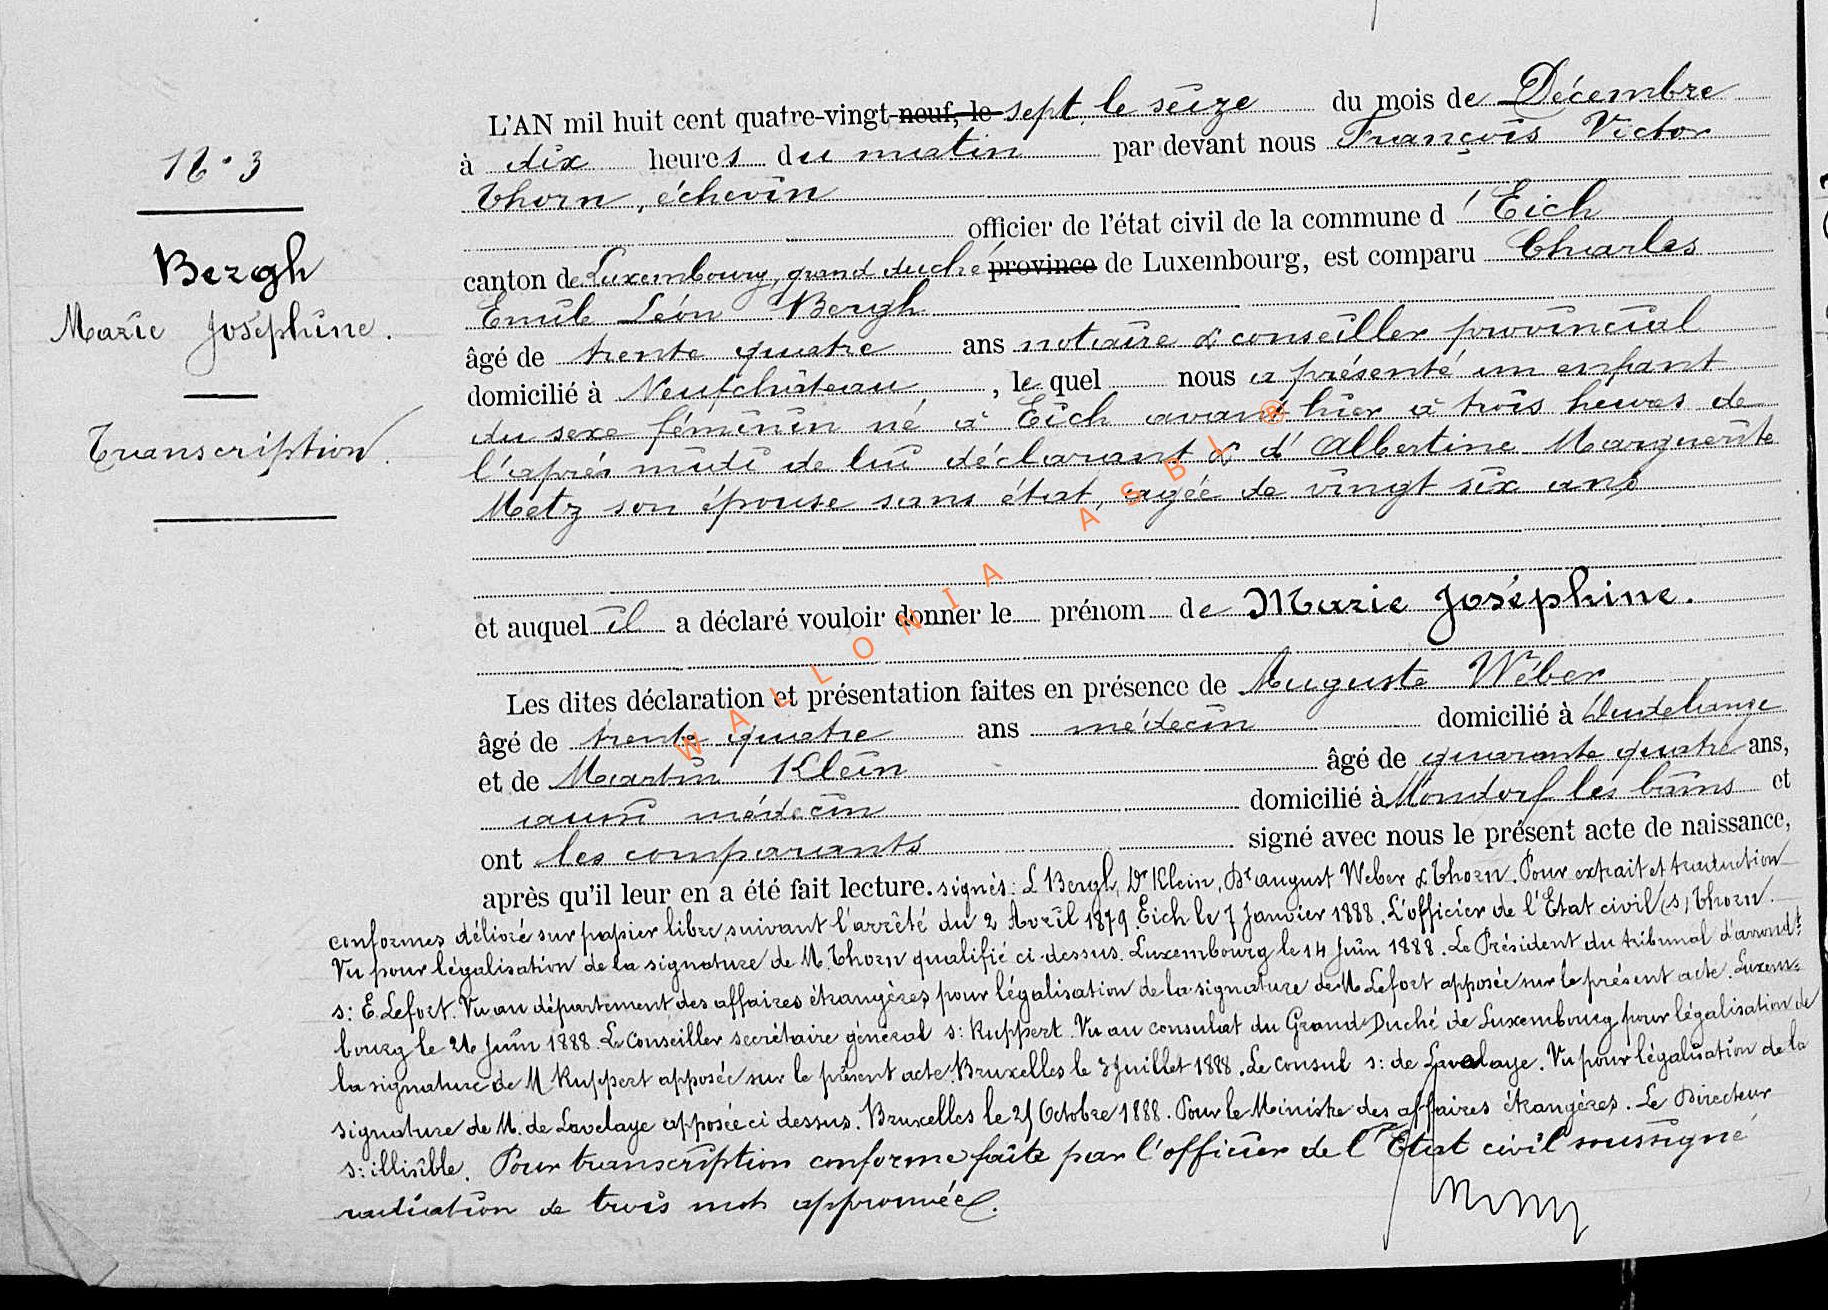 L'AN mil huit cent quatre-vingt-neuf, le sept, le seize du mois de Décembre
à dix heures du matin par devant nous François Victor
Thorn, échevin
officier de l'état civil de la commune d'Eich
canton de Luxembourg, grand duché province de Luxembourg, est comparu Charles
Emile Léon Bergh
âgé de trente quatre ans notaire & conseiller provincial
domicilié à Neufchâteau, le quel nous a présenté un enfant
du sexe féminin né à Eich avant hier à trois heures de
l'après midi de lui déclarant & d'Albertine Marguerite
Metz son épouse sans état, agée de vingt six ans
et auquel il a déclaré vouloir donner le prénom de Marie Joséphine.
Les dites déclaration et présentation faites en présence de Auguste Wéber
âgé de trente quatre ans médecin domicilié à Dudelange
et de Martin Klein âgé de quarante quatre ans,
aussi médecin domicilié à Mondorf les bains et
ont les comparants signé avec nous le présent acte de naissance,
après qu'il leur en a été fait lecture. signés: L Bergh, Dr Klein, Dr august Weber & Thorn. Pour extrait et traduction
conformes délivré sur papier libre, suivant l'arrêté du 2 Avril 1879. Eich le 7 Janvier 1888. L'officier de l'Etat civil (s) Thorn.
Vu pour légalisation de la signature de M. Thorn qualifié ci-dessus. Luxembourg le 14 Juin 1888. Le Président du tribunal d'arrondt
s: E. Lefort. Vu au département des affaires étrangères pour légalisation de la signature de M Lefort apposée sur le présent acte. Luxem=
bourg le Juin 1888. Le Conseiller secrétaire général s: Ruppert. Vu au consulat du Grand Duché de Luxembourg pour légalisation de
la signature de M Ruppert apposée sur le présent acte. Bruxelles le 3 Juillet 1888. Le Consul s: de Lavelaye. Vu pour légalisation de la
signature de M. de Lavelaye apposée ci dessus. Bruxelles le Octobre 1888. Pour le Ministre des affaires étrangères. Le Directeur
s: illisible. Pour transcription conforme faite par l'officier de l'Etat civil soussigné
radiation de trois mots approuvée.
Bergh
Marie Joséphine.
Transcription.
WALLONIA ASBL ®